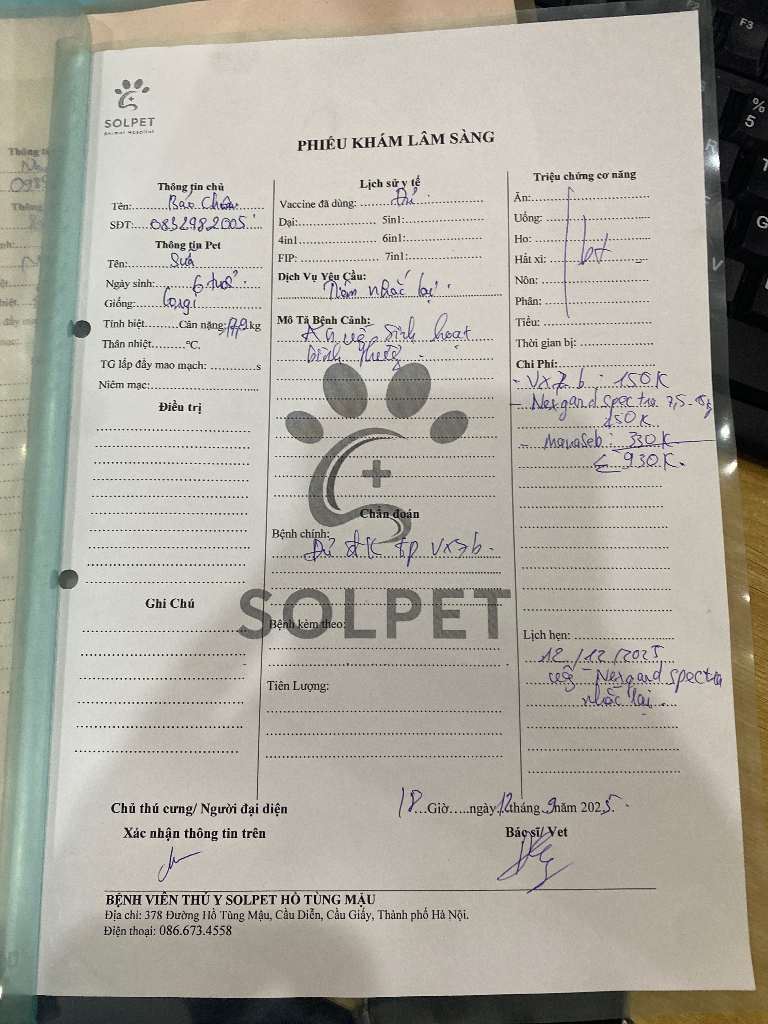 SOLPET
Animal Hospital
PHIẾU KHÁM LÂM SÀNG
Thông tin chủ
Tên: Bảo Châu
SĐT: 0832982005
Thông tin Pet
Tên: Sữa
Ngày sinh: 6 tuổi
Giống: Corgi
Tính biệt Cân nặng: kg
Thân nhiệt °C.
TG lấp đầy mao mạch: s
Niêm mạc:
Điều trị
Ghi Chú
Lịch sử y tế
Vaccine đã dùng: Đủ
Dại: 5in1:
4in1 6in1:
FIP: 7in1:
Dịch Vụ Yêu Cầu:
Tiêm nhắc lại
Mô Tả Bệnh Cảnh:
Ăn uống sinh hoạt
bình thường
Chẩn đoán
Bệnh chính:
Đủ đk tp vx7b.
SOLPET
Bệnh kèm theo:
Tiên Lượng:
Triệu chứng cơ năng
Ăn:
Uống:
Ho: bt
Hắt xì:
Nôn:
Phân:
Tiểu:
Thời gian bị:
Chi Phí:
- Vx7b: 150K
- Nexgard spectra 7,5-15kg
K
- : 330K
930K.
Lịch hẹn:
12/12/2025
uống Nexgard spectra
nhắc lại.
Chủ thú cưng/ Người đại diện
Xác nhận thông tin trên
18 Giờ.....ngày 12 tháng 9 năm 2025.
Bác sĩ/ Vet
BỆNH VIỆN THÚ Y SOLPET HỒ TÙNG MẬU
Địa chỉ: 378 Đường Hồ Tùng Mậu, Cầu Diễn, Cầu Giấy, Thành phố Hà Nội.
Điện thoại: 086.673.4558